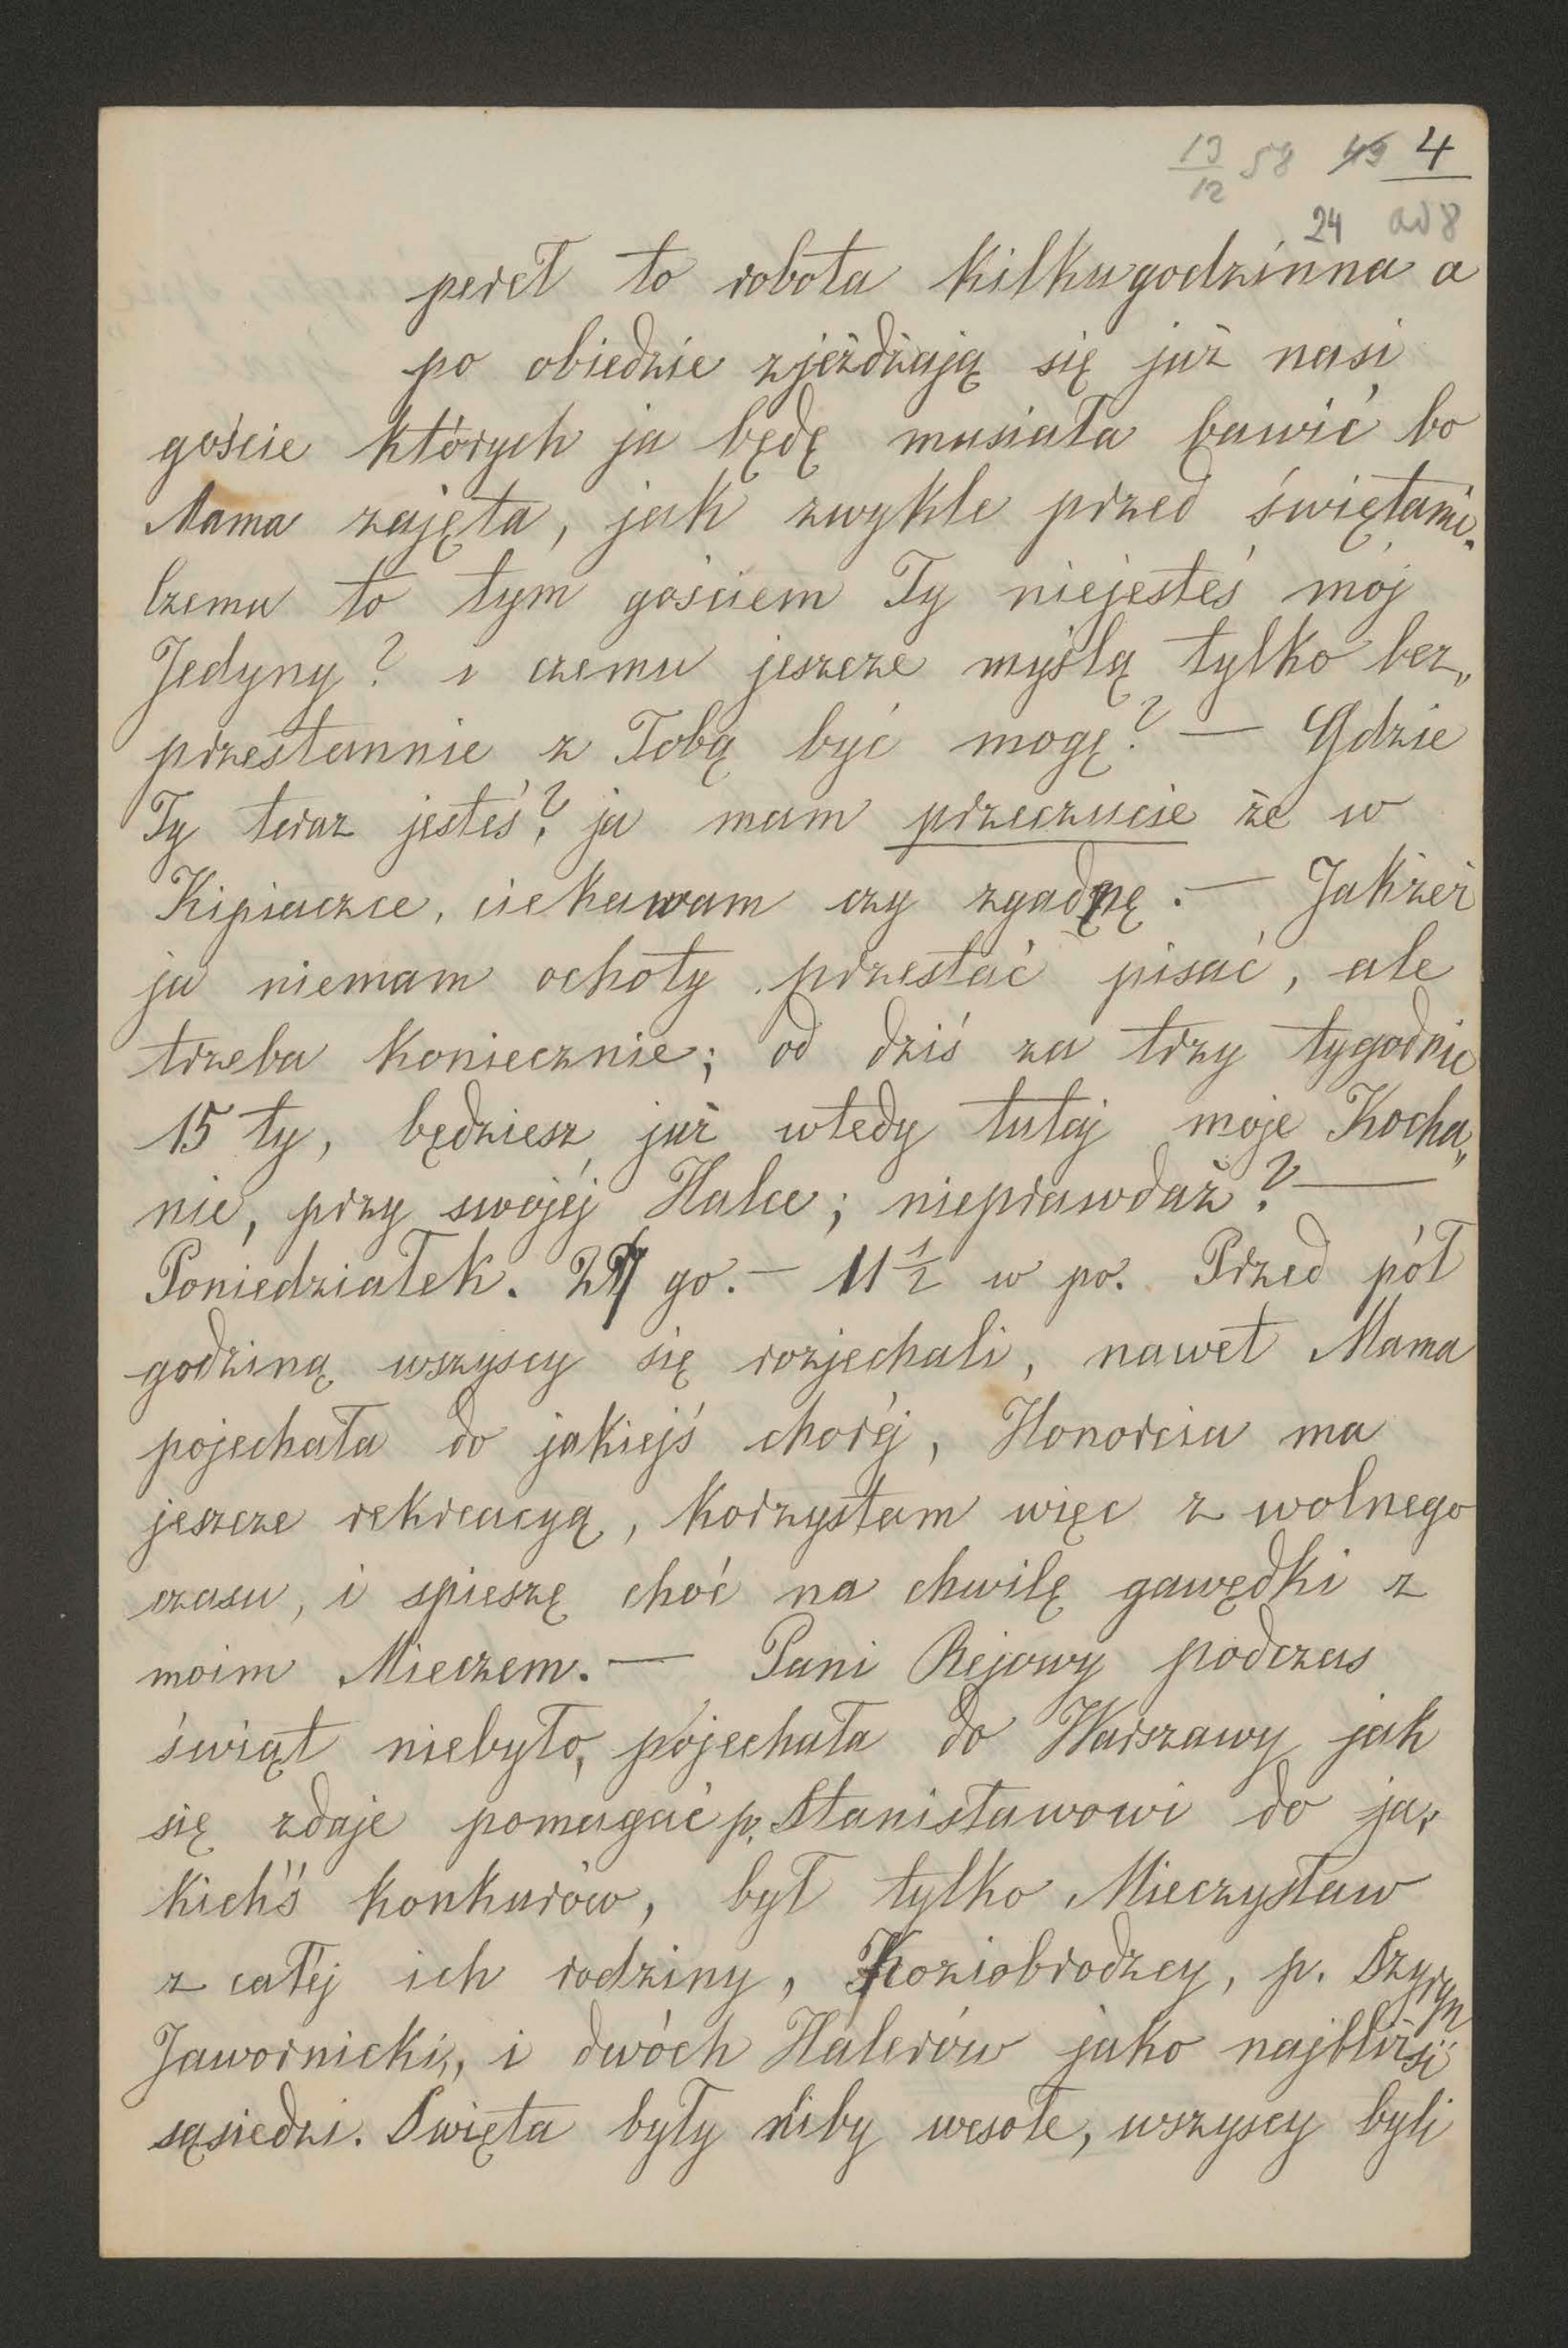 13/12 58 49 4
24 ad 8
peret to robota kilkugodzinna a
po obiedzie zjeżdżają się już nasi
goście których ja będę musiała bawić bo
Mama zajęta, jak zwykle przed świętami.
Czemu to tym gościem Ty niejesteś mój
Jedyny? i czemu jeszcze myślą tylko bez„
przestannie z Tobą być mogę? — Gdzie
Ty teraz jesteś? ja mam przeczucie że w
Kipiaczce, ciekawam czy zgadnę. — Jakżeż
ja niemam ochoty przestać pisać, ale
trzeba koniecznie; od dziś za trzy tygodnie
15 ty, będziesz już wtedy tutaj moje Kocha„
nie, przy swojéj Halce; nieprawdaż? —
Poniedziałek. go. — 11 1/2 w po. Przed pół
godziną wszyscy się rozjechali, nawet Mama
pojechała do jakiejś choréj, Honorcia ma
jeszcze rekreacyą, korzystam więc z wolnego
czasu, i spieszę choć na chwilę gawędki z
moim Mieczem. — Pani Rejowy podczas
świąt niebyło, pojechała do Warszawy jak
się zdaje pomagać p. Stanisławowi do ja„
kichś konkurów, był tylko Mieczysław
z całéj ich rodziny, Koziobrodzcy, p. Szyryn
Jawornicki, i dwóch Halerów jako najbliżsi
sąsiedzi. Święta były niby wesołe, wszyscy byli